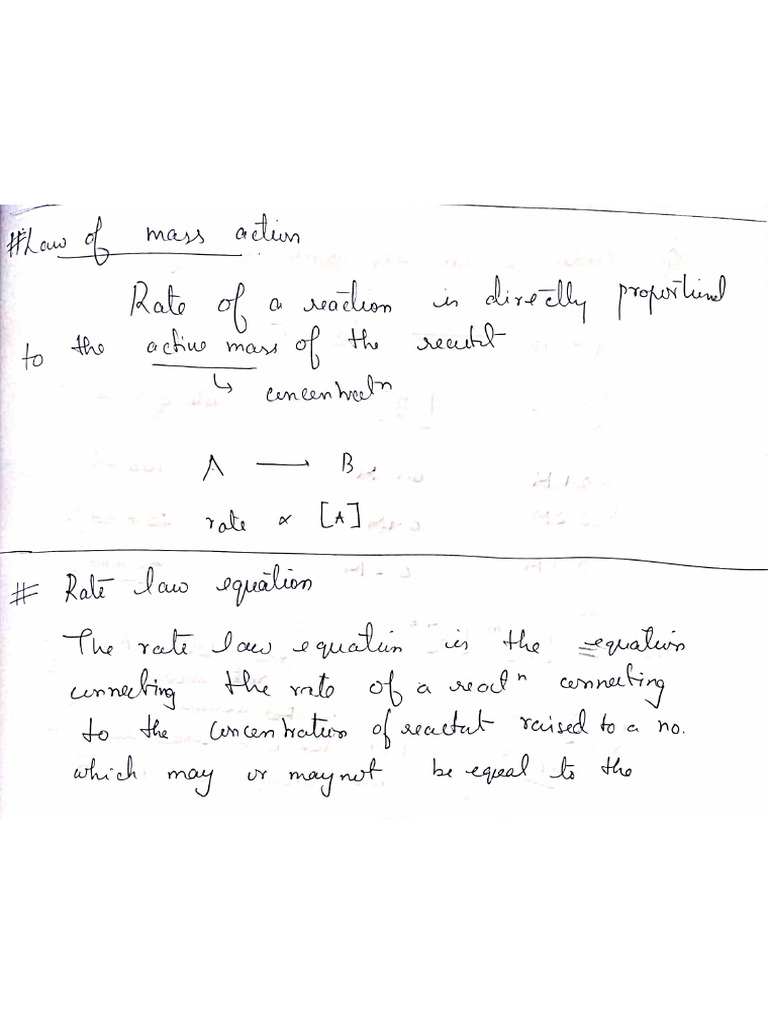 #Law of mass action
Rate of a reaction is directly proportional
to the active mass of the reactat
↳ concentratⁿ
A — B.
rate ∝ [A]
# Rate law equation
The rate law equation is the equation
connecting the rate of a reactⁿ connecting
to the concentration of reactat raised to a no.
which may or may not be equal to the